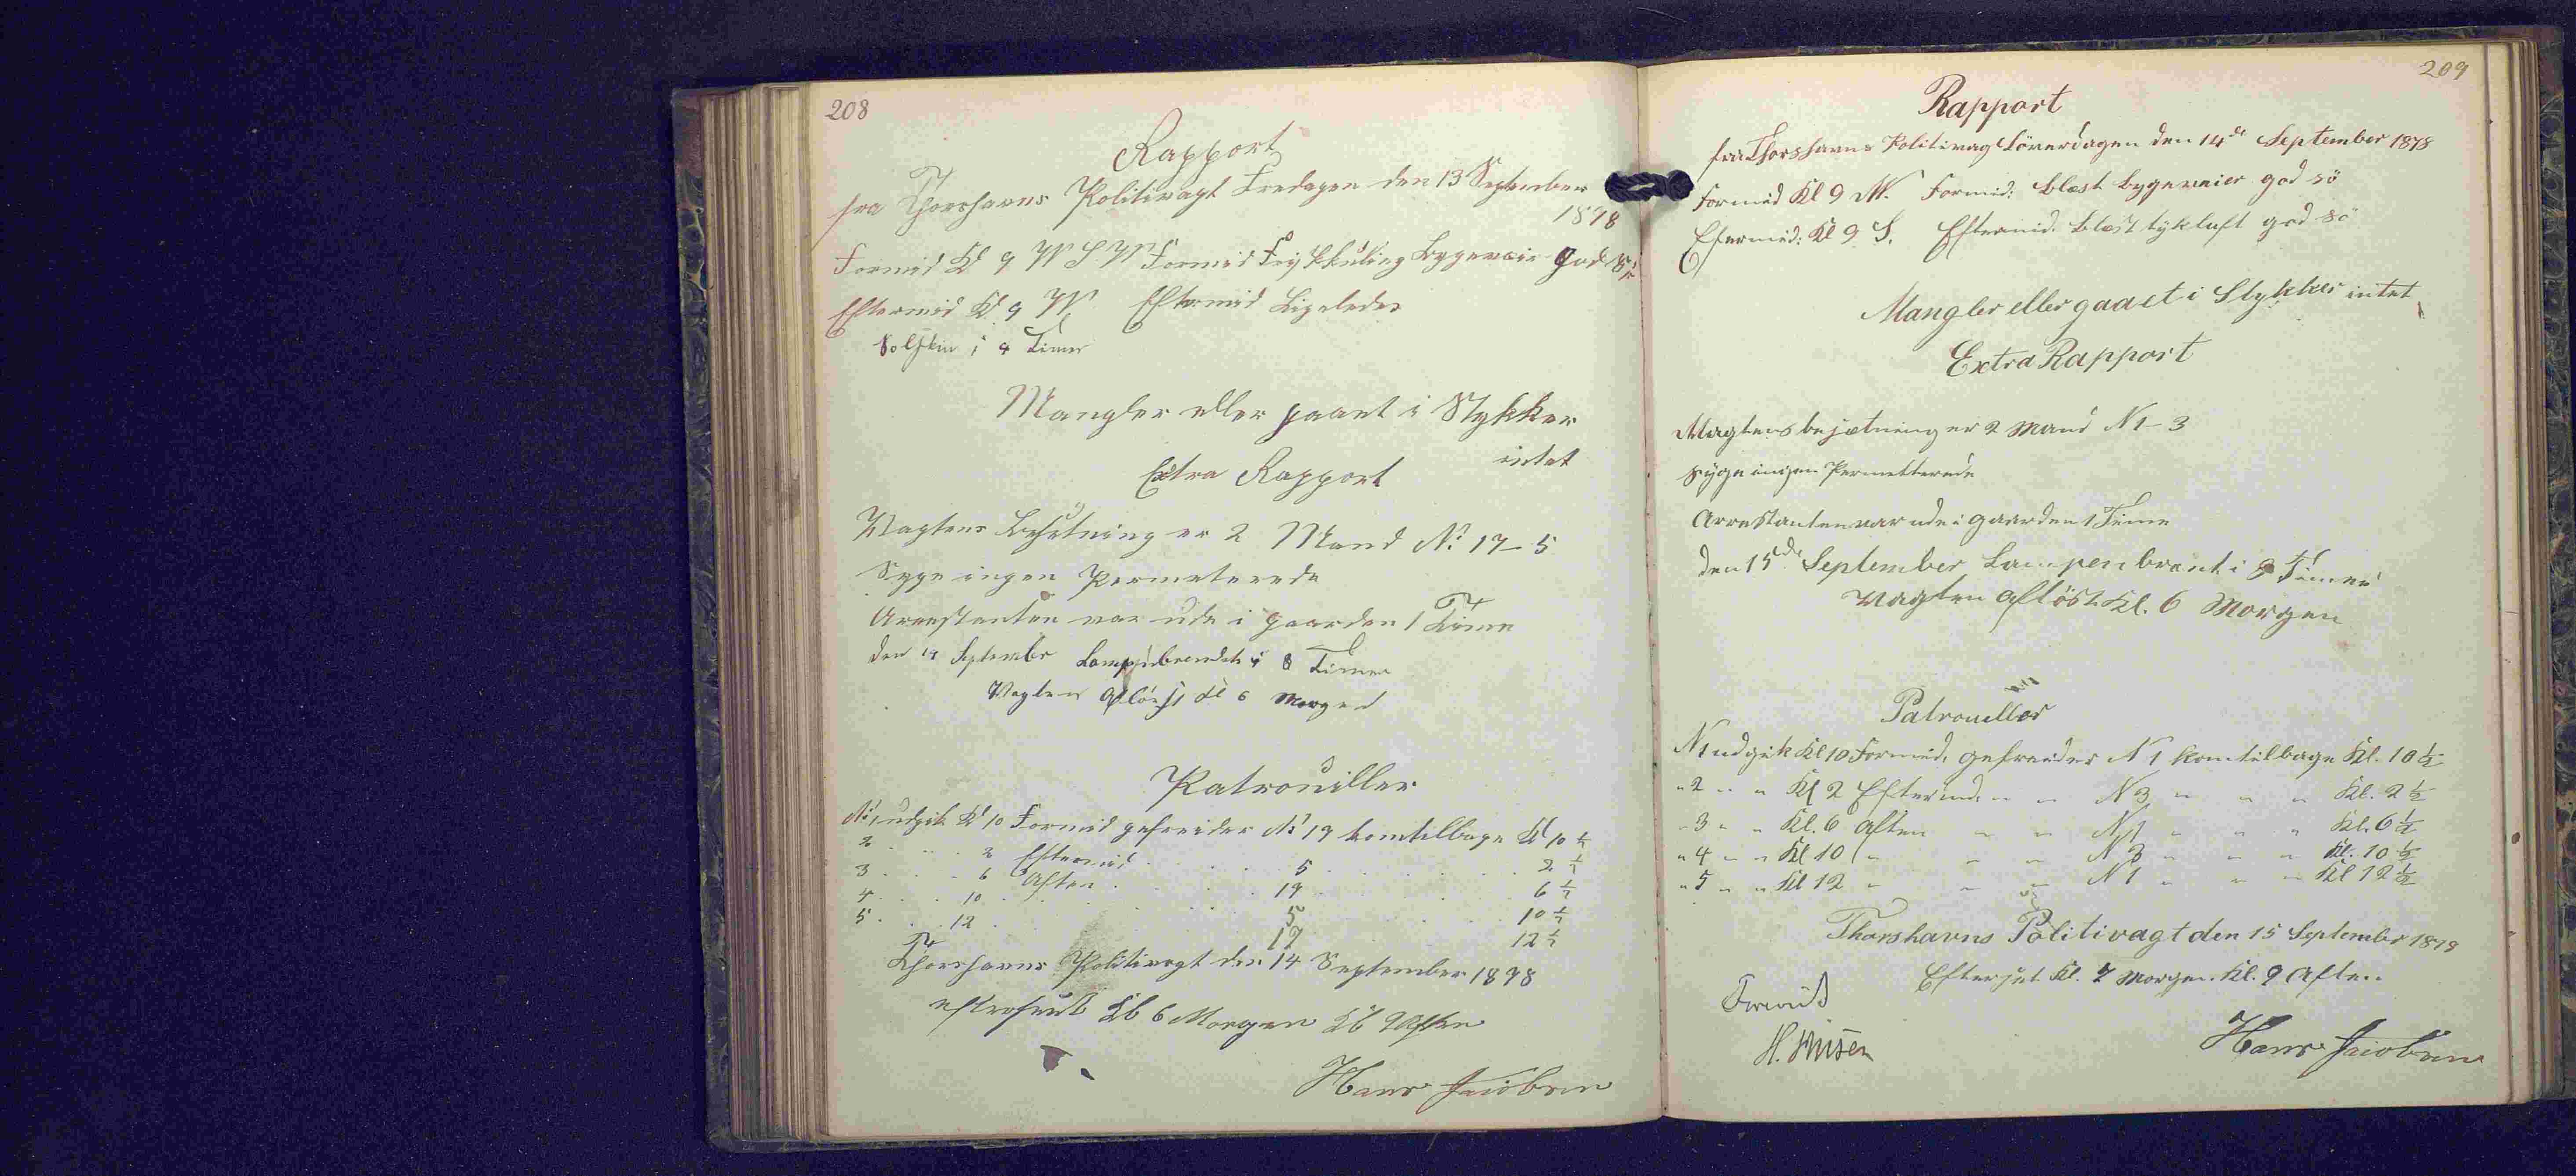 208
Rapport
fra Thorshavns Politivagt Fredagen den 13 September
1878
Formid Kl 9 W.S.W. Formid Frisk Kuling Bygeveir God Sö
Eftermid Kl 9 W Eftermid Ligeledes
Solskin i 4 Timer
Mangler eller gaaet i Stykker
intet
Extra Rapport
Vagtens Besetning er 2 Mand No 17-5
Syge ingen Permeterede
Arrestanten var ude i gaarden 1 Time
den 14 Septembr Lampen brendt i 8 Timer
Vagten Aflöst Kl 6 Morgen
Patrouiller
No 1 udgik Kl 10 Formid gefreider No 17 kom tilbage Kl 10 ½
2 . . . 2 Eftermid . . . 5 . . . 2 ½
3 . . . 6 Aften . . . 17 . . . 6 ½
4 . . . 10 . . . 5 . . . 10 ½
5 . . . 12 . . . 17 . . . 12 ½
Thorshavns Politivagt den 14 September 1878
efterseet Kl 6 Morgen Kl 9 Aften
Hans Jacobsen
209
Rapport
fra Thorshavns Politivagt Löverdagen den 14de September 1878
Formid Kl 9 W. Formid: blæst bygeveier god sö
Eftermid: Kl 9 S. Eftermid. blæst tykluft god sö
Mangler eller gaaet i Stykker intet
Extra Rapport
Vagtens besætning er 2 Mand N 1-3
Syge ingen Permetterede
Arrestanten var ude i gaarden 1 Time
den 15de September Lampen brænt i 9 Timer
Vagten Aflöst Kl. 6 Morgen
Patrouiller
N 1 udgik Kl 10 Formid. gefreider N 1 kom tilbage Kl. 10 ½
" 2 " " Kl 2 Eftermd. " " N 3 " " " Kl. 2 ½
" 3 " " Kl. 6 Aften " " N 1 " " " Kl. 6 ½
" 4 " " Kl 10 " " " N 3 " " " Kl. 10 ½
" 5 " " Kl 12 " " " N 1 " " " Kl 12 ½
Thorshavns Politivagt den 15 September 1878
Efterset Kl. 7 Morgen Kl. 9 Aften
Hans Jacobsen